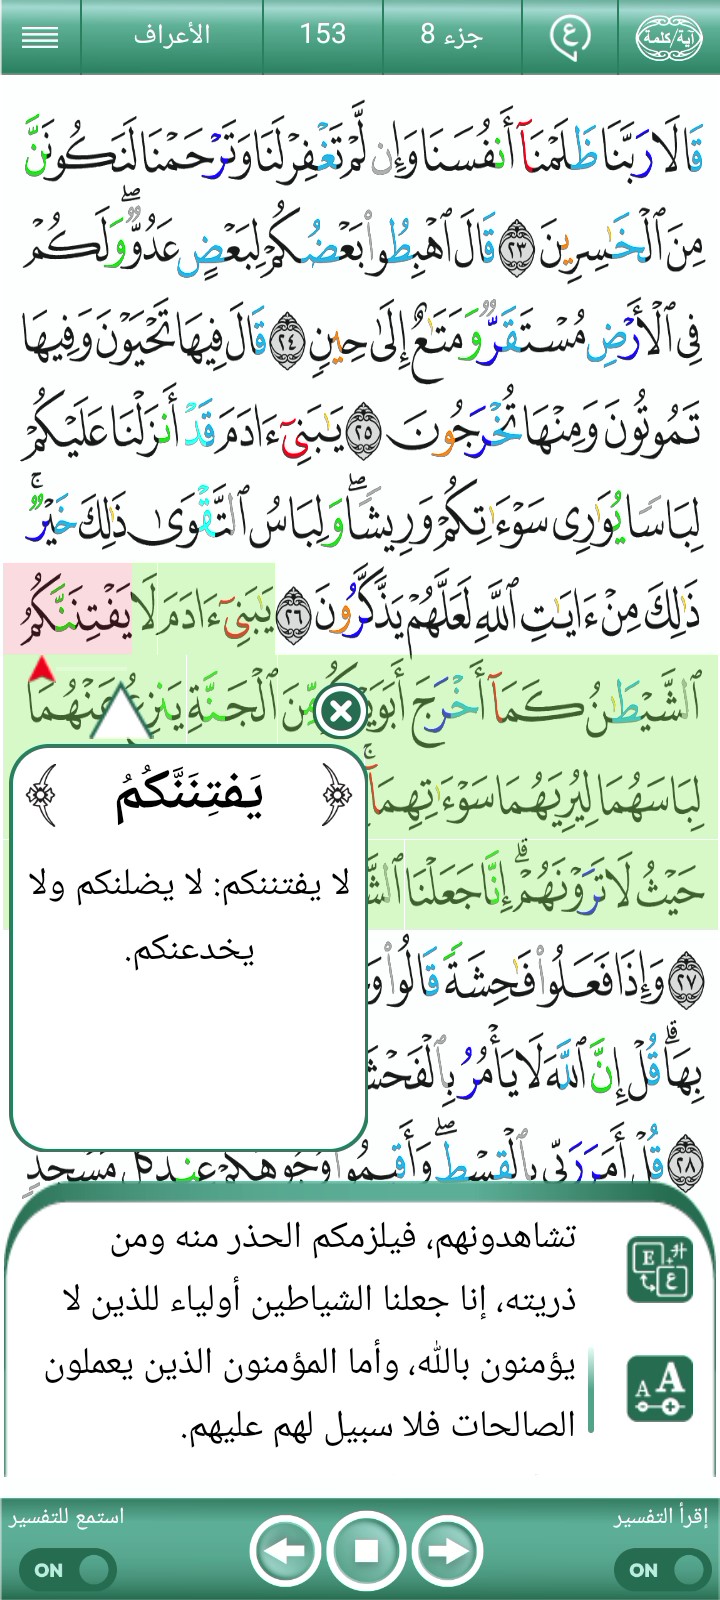 آية/كلمة
ع
جزء 8
153
الأعراف
قَالَا رَبَّنَا ظَلَمْنَآ أَنفُسَنَا وَإِن لَّمْ تَغْفِرْ لَنَا وَتَرْحَمْنَا لَنَكُونَنَّ
مِنَ ٱلْخَـٰسِرِينَ ٢٣ قَالَ ٱهْبِطُوا۟ بَعْضُكُمْ لِبَعْضٍ عَدُوٌّۖ وَلَكُمْ
فِى ٱلْأَرْضِ مُسْتَقَرٌّ وَمَتَـٰعٌ إِلَىٰ حِينٍ ٢٤ قَالَ فِيهَا تَحْيَوْنَ وَفِيهَا
تَمُوتُونَ وَمِنْهَا تُخْرَجُونَ ٢٥ يَـٰبَنِىٓ ءَادَمَ قَدْ أَنزَلْنَا عَلَيْكُمْ
لِبَاسًا يُوَٰرِى سَوْءَٰتِكُمْ وَرِيشًاۖ وَلِبَاسُ ٱلتَّقْوَىٰ ذَٰلِكَ خَيْرٌۚ
ذَٰلِكَ مِنْ ءَايَـٰتِ ٱللَّهِ لَعَلَّهُمْ يَذَّكَّرُونَ ٢٦ يَـٰبَنِىٓ ءَادَمَ لَا يَفْتِنَنَّكُمُ
ٱلشَّيْطَـٰنُ كَمَآ أَخْرَجَ مِّنَ ٱلْجَنَّةِ يَنزِعُ عَنْهُمَا
لِبَاسَهُمَا لِيُرِيَهُمَا سَوْءَٰتِهِمَآۚ
حَيْثُ لَا تَرَوْنَهُمْۗ إِنَّا جَعَلْنَا
٢٧ وَإِذَا فَعَلُوا۟ فَـٰحِشَةً قَالُوا۟
بِهَاۗ قُلْ إِنَّ ٱللَّهَ لَا يَأْمُرُ
٢٨ قُلْ أَمَرَ رَبِّى بِٱلْقِسْطِۖ وَأَقِيمُوا۟ وُجُوهَكُمْ عِندَ كُلِّ مَسْجِدٍ
﴿ يَفتِنَنَّكُمُ ﴾
لا يفتننكم: لا يضلنكم ولا
يخدعنكم.
تشاهدونهم، فيلزمكم الحذر منه ومن
ذريته، إنا جعلنا الشياطين أولياء للذين لا
يؤمنون بالله، وأما المؤمنون الذين يعملون
الصالحات فلا سبيل لهم عليهم.
E ع
A A
إقرأ التفسير
استمع للتفسير
ON
ON